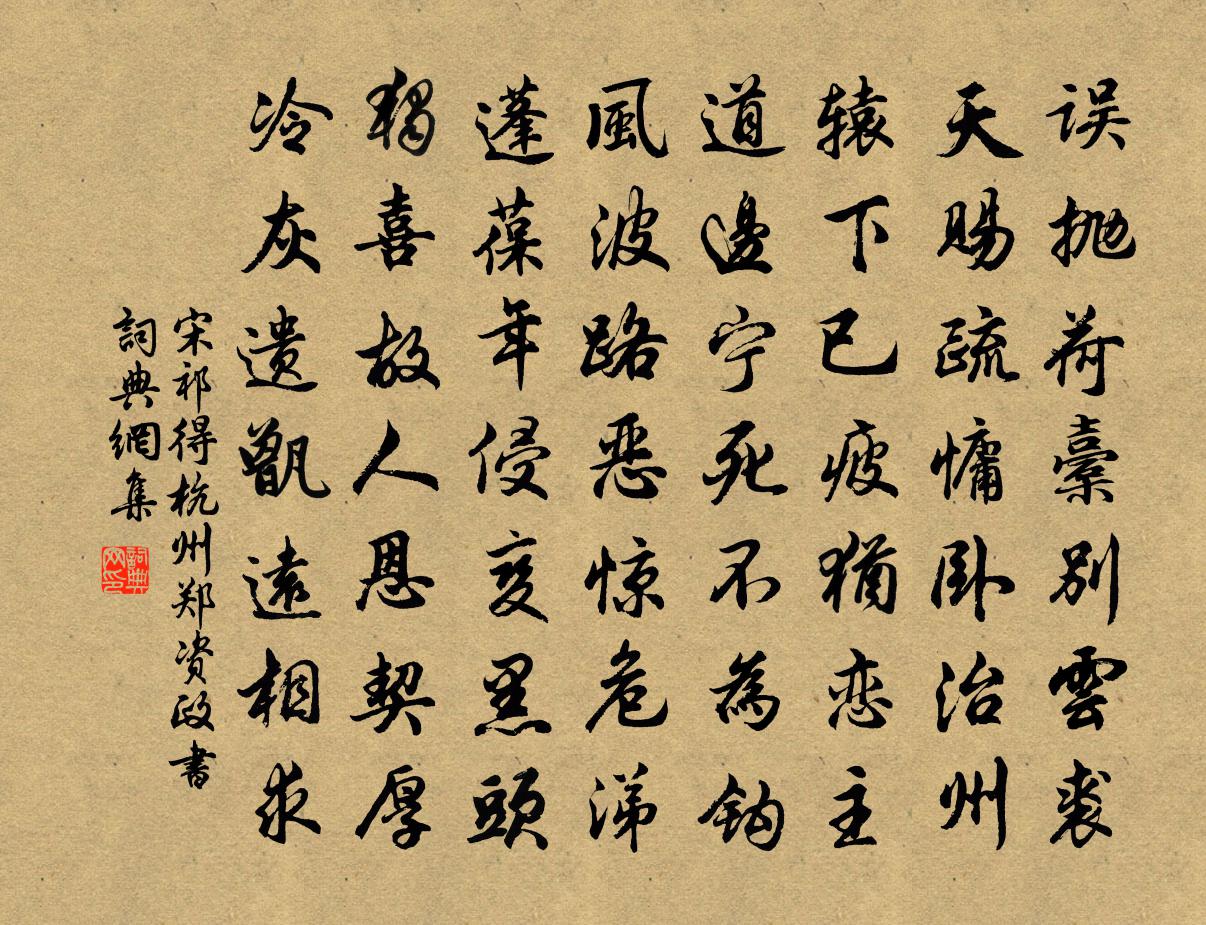 误抛荷橐别雲裘
天赐疏慵卧治州
辕下已疲犹恋主
道邊宁死不為钩
風波路恶惊危涕
蓬葆年侵变黑頭
独喜故人恩契厚
冷灰遗甑遠相求
宋祁得杭州郑资政書
詞典網集
詞典
网印